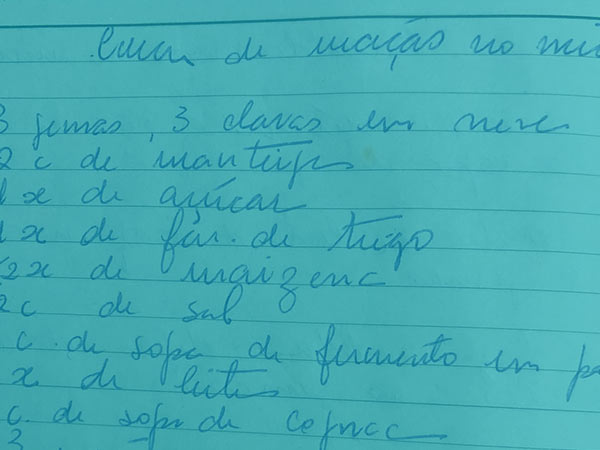 de maças no
3 gemas, 3 claras em neve
2 c de manteiga
1 x de açúcar
1 x de far. de trigo
2x de maizena
2 c de sal
c. de sopa de fermento em
x de leite
c. de sopa de cognac
3